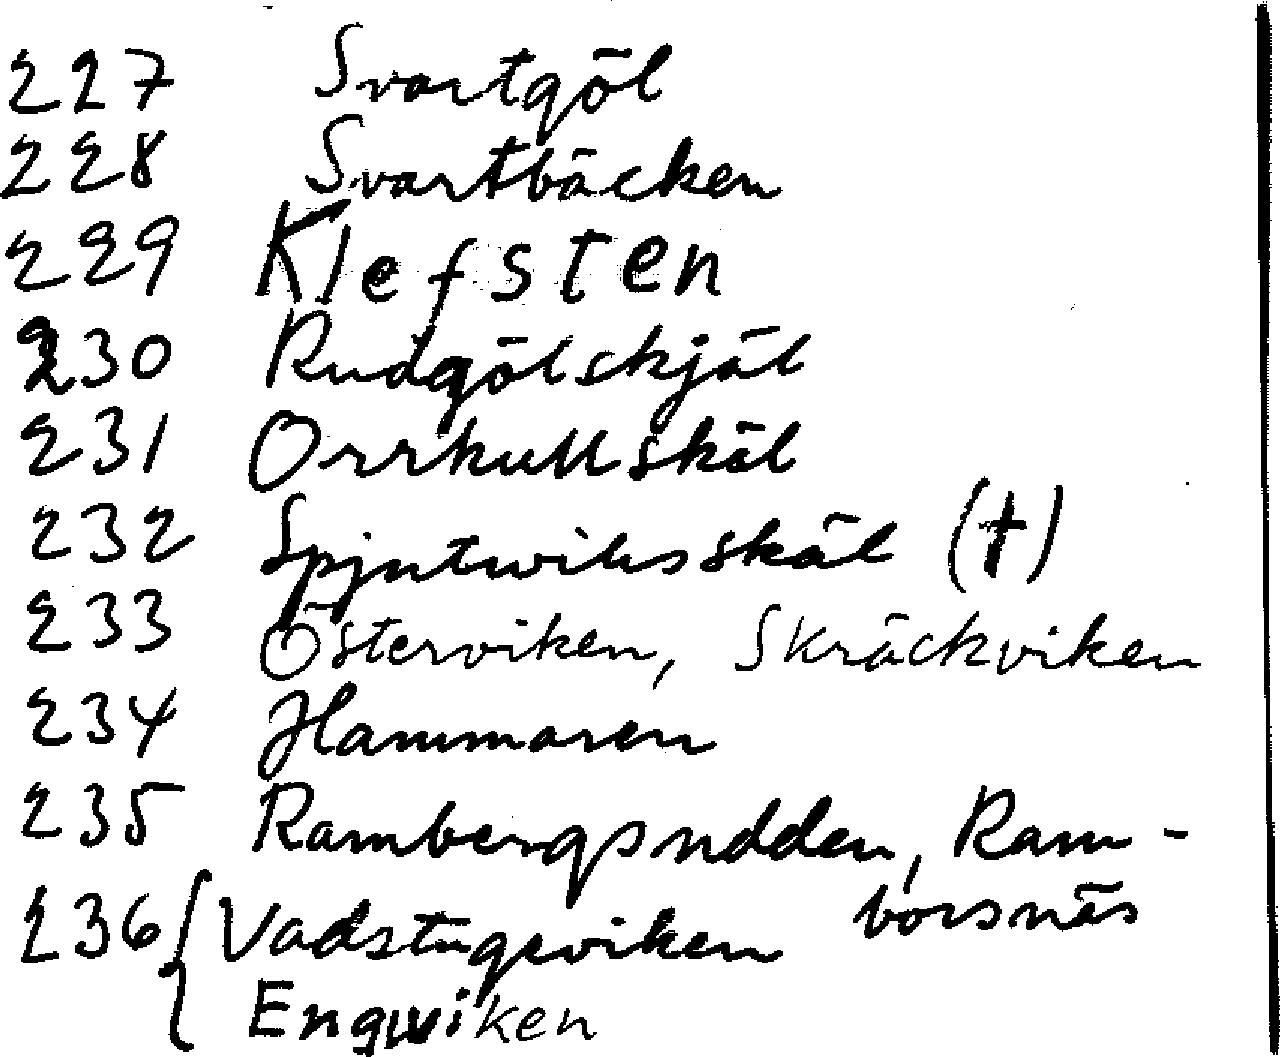 227 Svartgöl
228 Svartbäcken
229 Klefsten
230 Rudgölskjäl
231 Orrkullskäl
232 Spjutwiksskäl (†)
233 Österviken, Skräckviken
234 Hammaren
235 Rambergsudden, Ram-
borsnäs
236 { Vadstugeviken
Engwiken